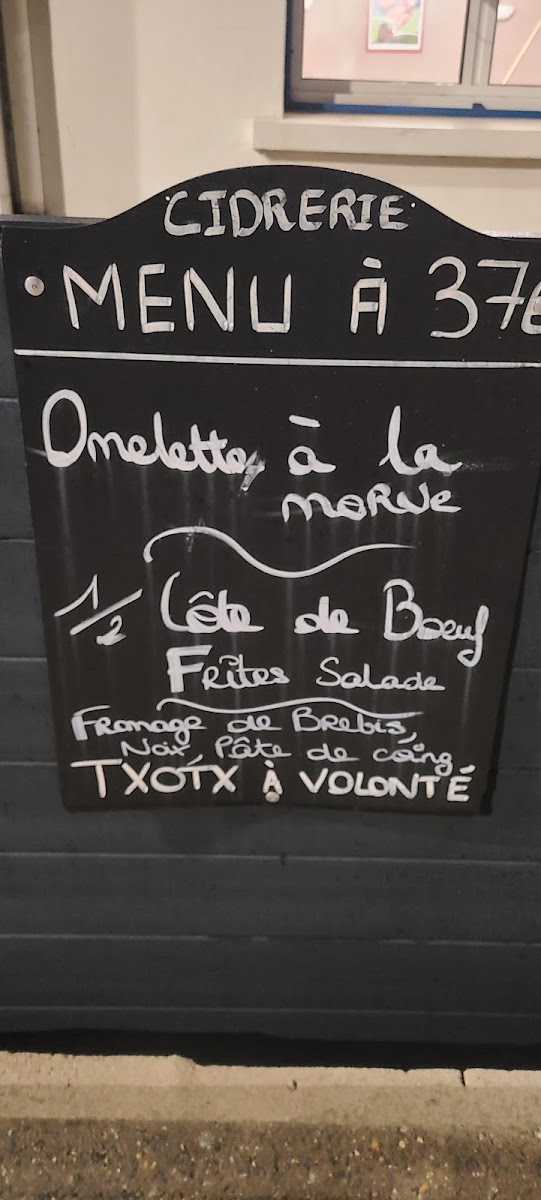 CIDRERIE
MENU À 37€
Omelette à la
MORUE
1/2 Côte de Boeuf
Frîtes Salade
Fromage de Brebis,
Noix, Pâte de coing
TXOTX À VOLONTÉ